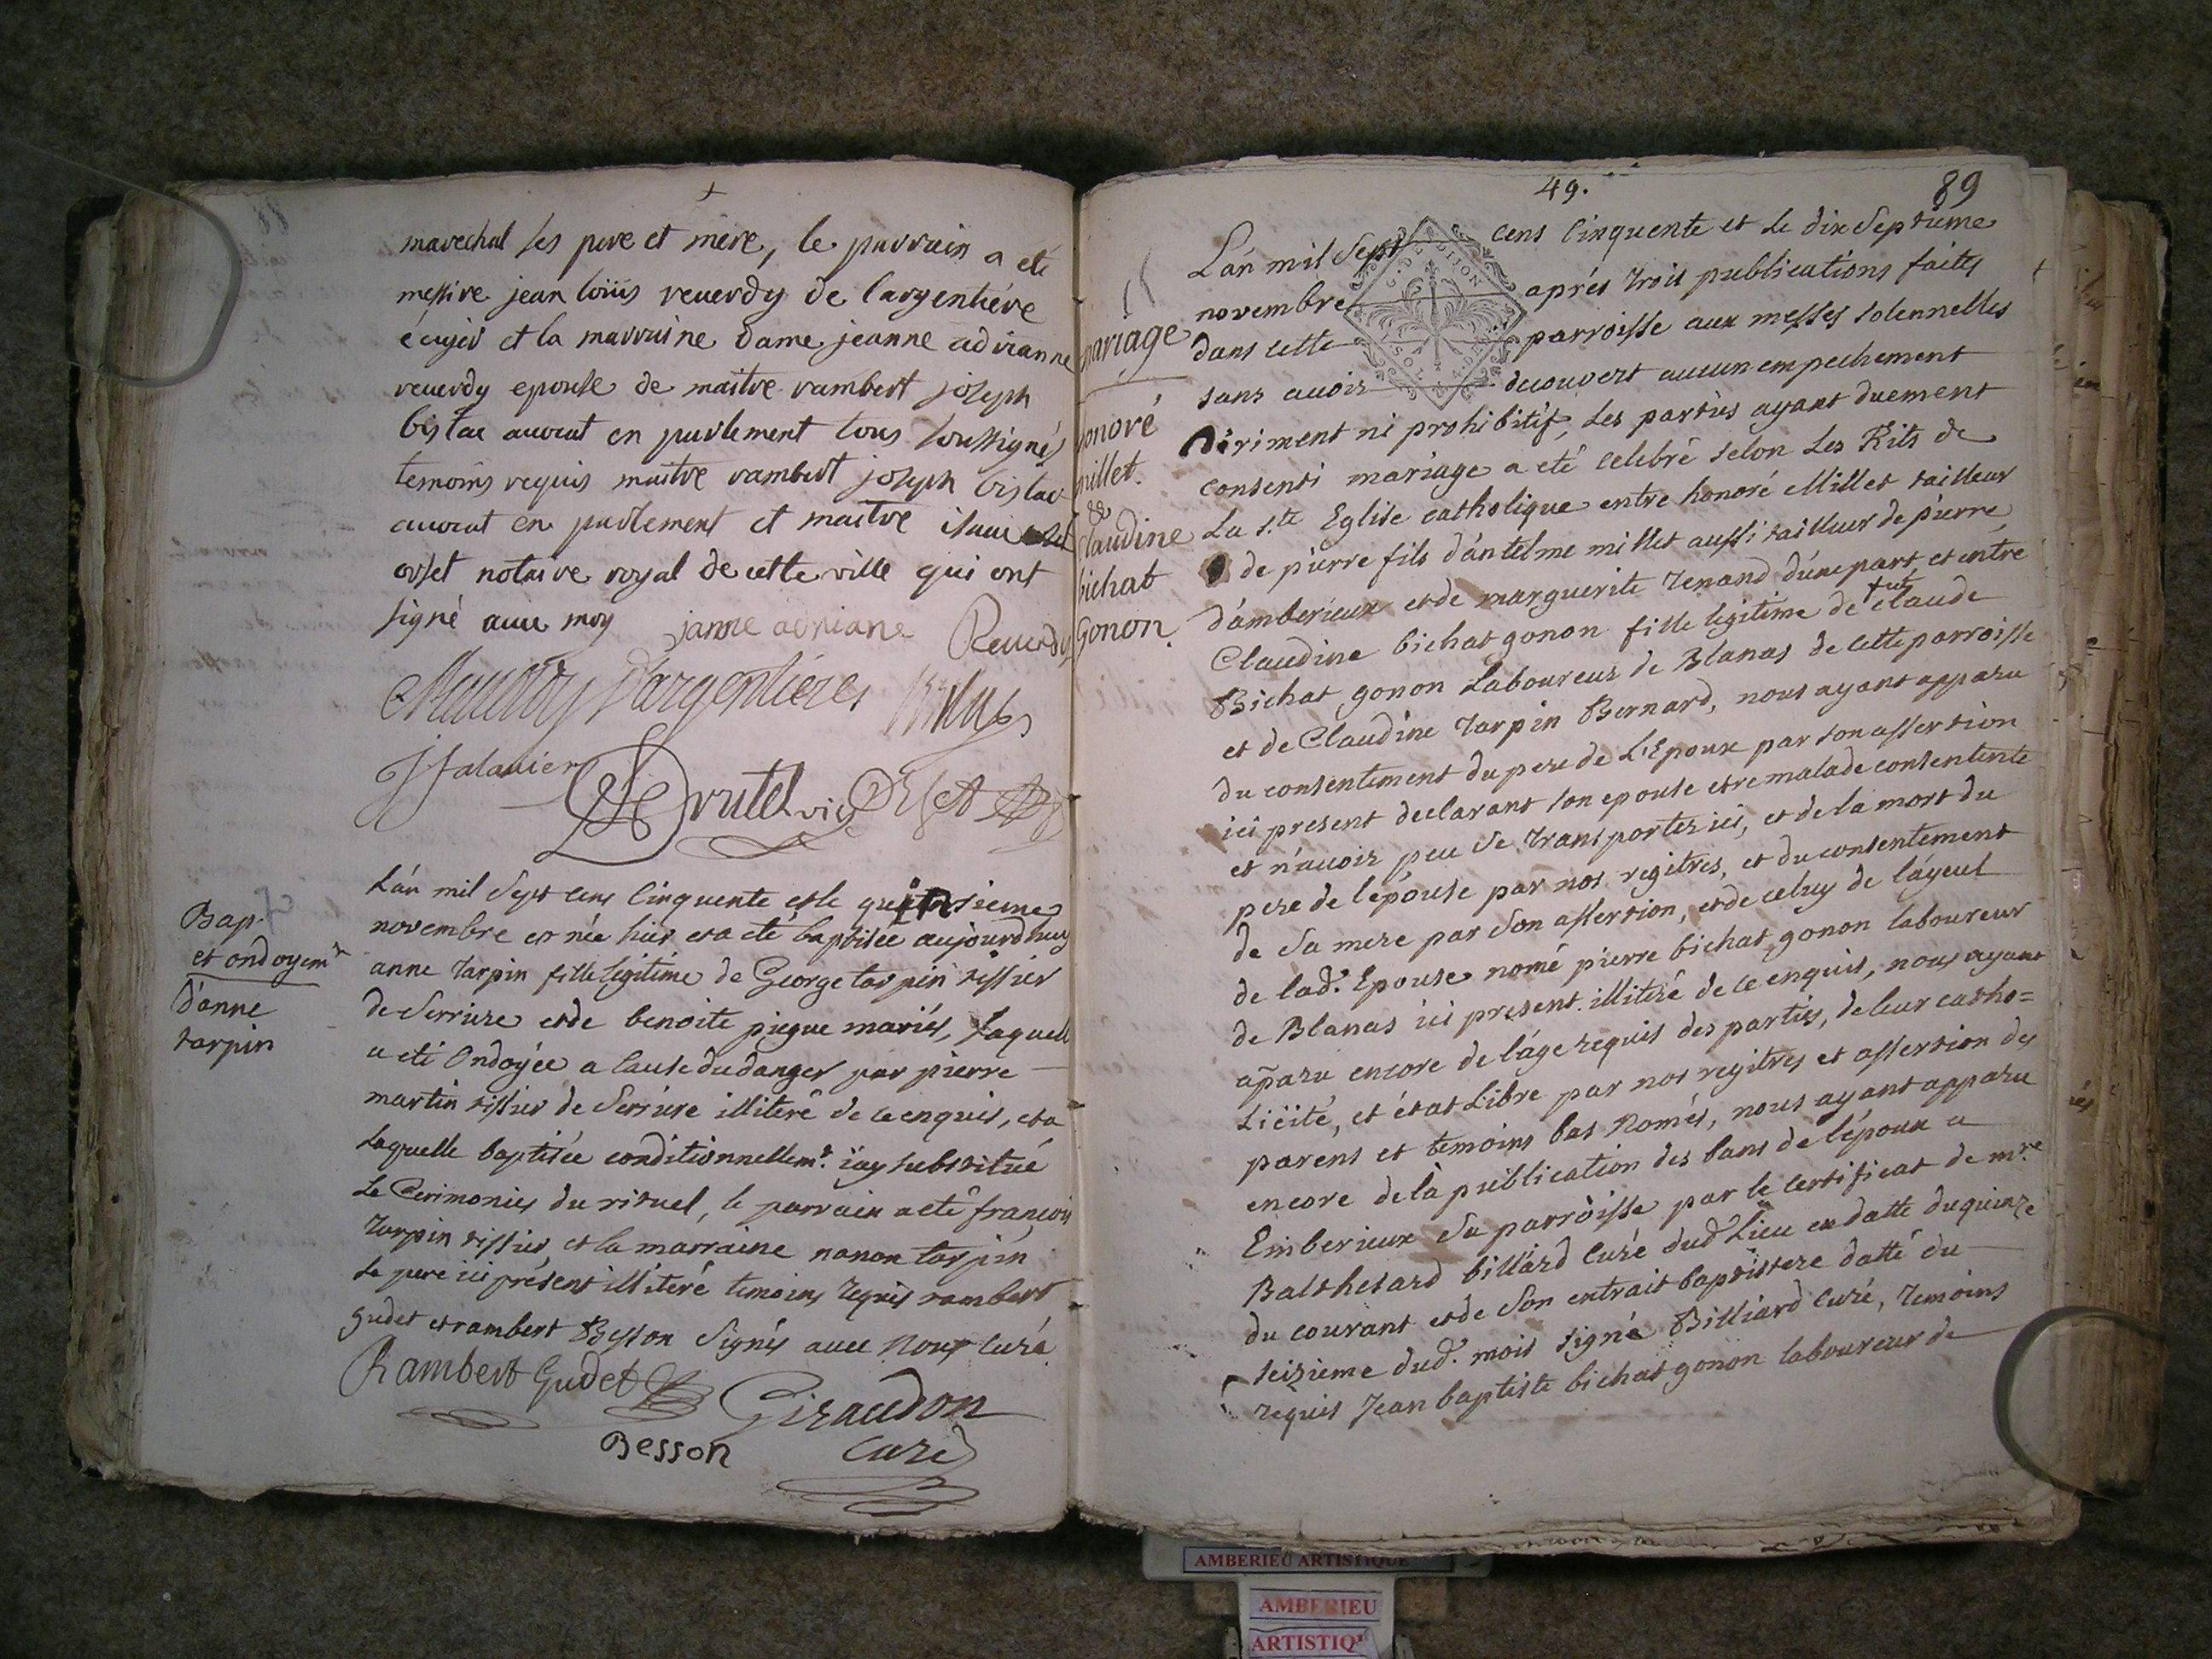 marechal ses pere et mere, le parrain a eté
messire jean loüis reverdy de l'argentiere
écuyer et la marraine dame jeanne adrianne
reverdy epouse de maitre rambert joseph
bislac avocat en parlement tous soussignés
temoins requis maitre rambert joseph bislac
avocat en parlement et maitre
orset notaire royal de cette ville qui ont
signé avec moy janne adriane Reverdy
D'argentiere
Brutel vic Orset
Bap.
et ondoyemt
d'anne
tarpin
L'an mil sept cens cinquente et le quinsieme
novembre est née hier et a eté baptisée aujourd'huy
anne tarpin fille legitime de George tarpin tissier
de Serriere et de benoite piegue mariés, laquelle
a eté Ondoyée a cause du danger par pierre
martin tissier de Serriere illiteré de ce enquis, et a
laquelle baptisée conditionnellemt. jay substitué
Le Cerimonies du rituel, le parrain a eté françois
tarpin tissier, et la marraine nanon tarpin
le pere ici présent illiteré temoins requis rambert
gudet et rambert Besson signés avec Nous curé
Rambert Gudet
Giraudon
Besson curé
49. 89
mariage
honoré
millet.
&
Claudine
bichat
Gonon.
L'an mil sept cens cinquente et le dix septieme
novembre aprés trois publications faites
dans cette parroisse aux messes solennelles
sans avoir decouvert aucun empechement
diriment ni prohibitif, les parties ayant duement
consenti mariage a eté celebré selon les Rits de
La s.te Eglise catholique entre honoré Millet tailleur
de pierre fils d'antelme millet aussi tailleur de pierre
d'amberieux et de marguerite renand d'une part et entre
Claudine bichat gonon fille legitime de fut claude
Bichat gonon Laboureur de Blanas de cette parroisse
et de Claudine tarpin Bernard, nous ayant apparu
du consentement du pere de L'Epoux par son assertion
ici present declarant son epouse etre malade consentente
et n'avoir peu se transporter ici, et de la mort du
pere de l'épouse par nos regitres, et du consentement
de sa mere par son assertion, et de celuy de láyeul
de lad.e Epouse nomé pierre bichat gonon laboureur
de Blanas ici present illiteré de ce enquis, nous ayant
aparu encore de l'áge requis des parties, de leur catho=
Licité, et état Libre par nos regitres et assertion des
parens et temoins bas Només, nous ayant apparu
encore de la publication des bans de l'époux a
Emberieux sa parroisse par le certificat de mre
Balthesard billiard curé dud. Lieu en datte du quinze
du courant et de son entrait baptistere datté du
seizieme dud. mois signé Billiard curé, temoins
requis Jean baptiste bichat gonon laboureur de
AMBERIEU ARTISTIQUE
AMBERIEU
ARTISTIQ